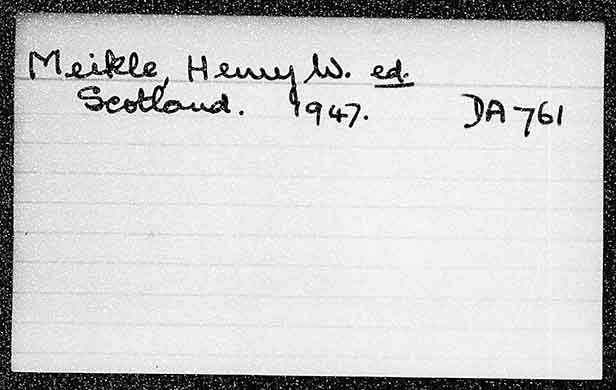 Meikle, Henry W. ed.
Scotland. 1947. DA 761